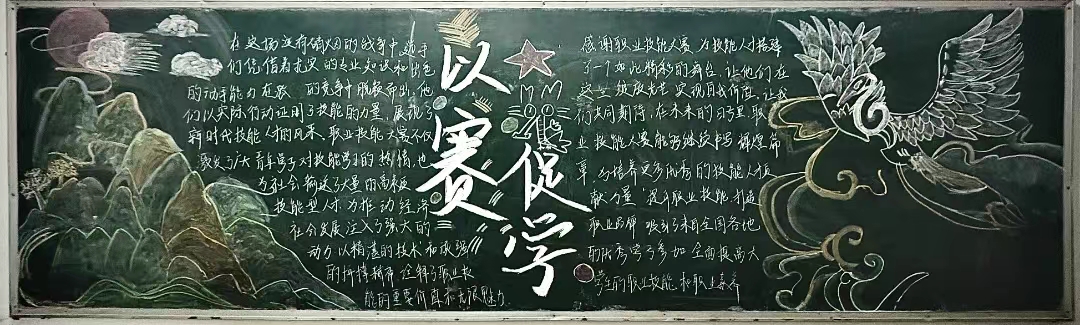 在这场没有硝烟的战争中选手
们凭借着扎实的专业知识和出色
的动手能力在激的竞争中脱颖而出,他
们以实际行动证明了技能的力量,展现了
新时代技能人才的风采,职业技能大赛不仅
激发了广大青年学子对技能学习的热情,也
为社会输送了大量的高素质
技能型人才,为推动经济
社会发展注入了强大的
动力以精湛的技术和顽强
的拼搏精神诠释了职业技
能的重要价值和无限魅力
以赛促学
感谢职业技能大赛,为技能人才搭建
了一个如此精彩的舞台,让他们在
这里绽放光芒,实现自我价值,让我
们共同期待,在未来的日子里,职
业技能大赛能够继续书写辉煌篇
章,为培养更多优秀的技能人才贡
献力量,提升职业技能,打造
职业品牌,吸引了来自全国各地
的优秀学子参加全面提高大
学生的职业技能和职业素养